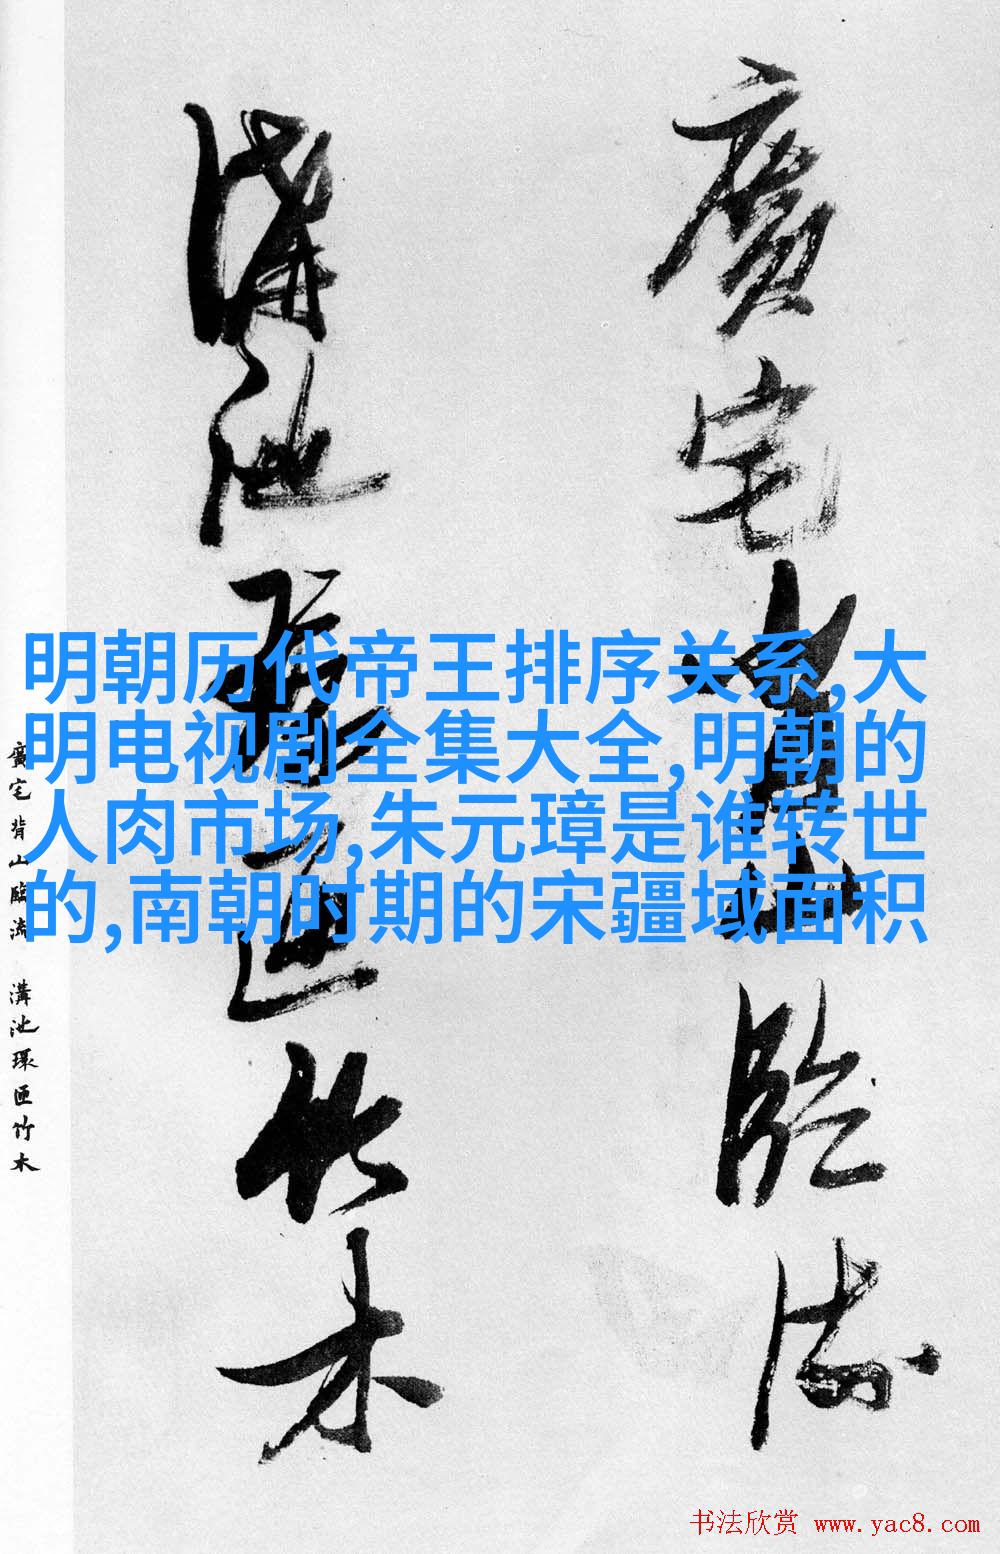 廣宅背山臨流
溝池環匝竹木
明朝历代帝王排序关系,大
明电视剧全集大全,明朝的
人肉市场,朱元璋是谁转世
的,南朝时期的宋疆域面积
廣宅背山臨流 溝池環匝竹木
书法欣赏 www.yac8.com